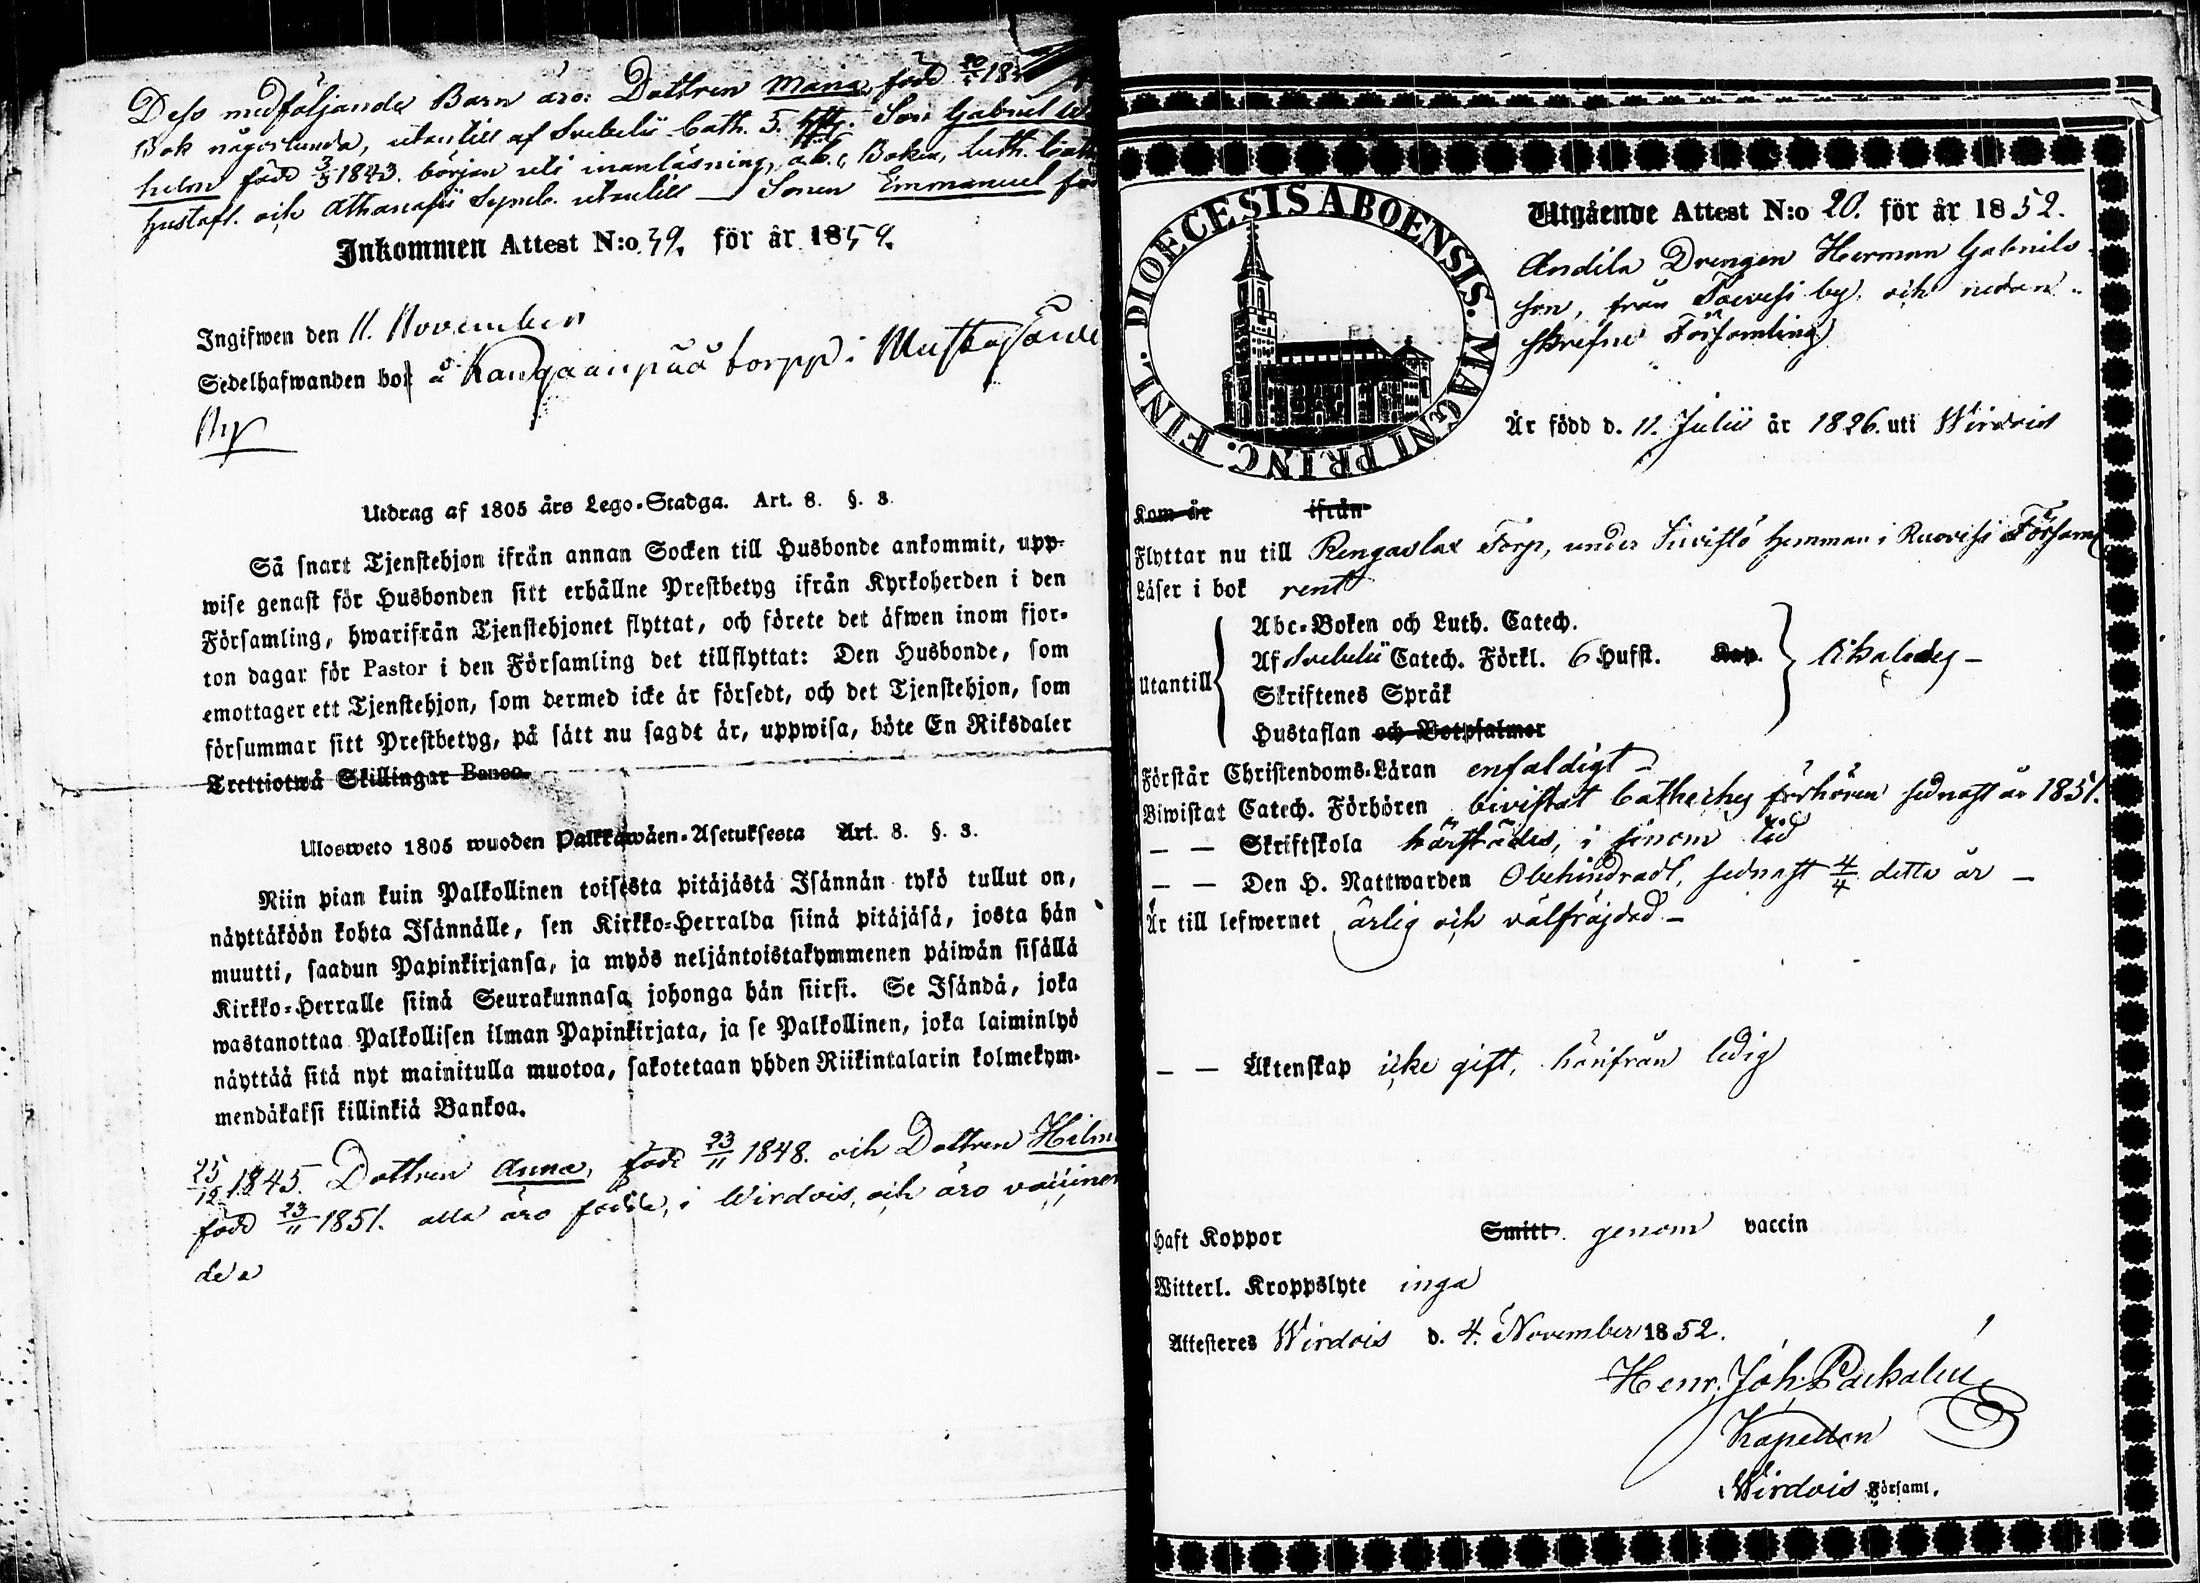 Dess medföljande Barn äro: Dottren Maria, född 20/5 18
Bok någorlunda, utantill af Svebelii Cath. 5. Hft. Son Gabriel Wil
helm född 3/3 1843. början uti innanläsning, a.b.c Boken, Luth. Cate
Hustafl. och Athanasii Symb. utantill — Sonen Emmanuel föd
Inkommen Attest N:o 39. för år 1852.
Ingifwen den 11. November
Sedelhafwanden bor å Kangaanpää torpp i Mustajärvi
By
Utdrag af 1805 års Lego-Stadga. Art. 8. §. 3.
Så snart Tjenstehjon ifrån annan Socken till Husbonde ankommit, upp-
wise genast för Husbonden sitt erhållne Prestbetyg ifrån Kyrkoherden i den
Församling, hwarifrån Tjenstehjonet flyttat, och förete det äfwen inom fjor-
ton dagar för Pastor i den Församling det tillflyttat: Den Husbonde, som
emottager ett Tjenstehjon, som dermed icke är försedt, och det Tjenstehjon, som
försummar sitt Prestbetyg, på sätt nu sagdt är, uppwisa, böte En Riksdaler
Trettiotwå Skillingar Banco.
Ulosweto 1805 wuoden Palkkawäen-Asetuksesta Art. 8. §. 3.
Niin pian kuin Palkollinen toisesta pitäjästä Isännän tykö tullut on,
näyttäköön kohta Isännälle, sen Kirkko-Herralda siinä pitäjäsä, josta hän
muutti, saadun Papinkirjansa, ja myös neljäntoistakymmenen päiwän sisällä
Kirkko-Herralle siinä Seurakunnasa johonga hän siirsi. Se Isändä, joka
wastanottaa Palkollisen ilman Papinkirjata, ja se Palkollinen, joka laiminlyö
näyttää sitä nyt mainitulla muotoa, sakotetaan yhden Riikintalarin kolmekym-
mendäkaksi killinkiä Bankoa.
25/12 1845. Dottren Anna, född 23/11 1848. och Dottren Hilm
född 23/11 1851. alla äro födde, i Wirdois, och äro vacciner
de
DIOECESIS ABOENSIS. MAGNI PRINC. FINL.
Utgående Attest N:o 20. för år 1852.
Andila Drengen Herman Gabriels
son, från Toivesi by, och nedan-
skrefne Församling
Är född d. 11. Julii år 1826. uti Wirdois
Kom år ifrån
Flyttar nu till Rengaslax Torp, under Siivistö hemman i Ruovesi Församl
Läser i bok rent
Abc-Boken och Luth. Catech.
Utantill Af Svebelii Catech. Förkl. 6 Hufst. Kap.
Skriftenes Språk
Hustaflan och Botpsalmer
Förstår Christendoms-Läran enfaldigt
Biwistat Catech. Förhören bivistat Catheches förhören sednast år 1851.
— — Skriftskola härstädes, i sinom tid
— — Den H. Nattwarden Obehindradt, sednast 4/4 detta år —
Är till lefwernet ärlig och välfräjdad —
— — Äktenskap icke gift, härifrån ledig
Haft Koppor Smitt. genom vaccin
Witterl. Kroppslyte inga
Attesteres Wirdois d. 4. November 1852.
Henr. Joh. Packalén
Kapellan
Wirdois Församl.